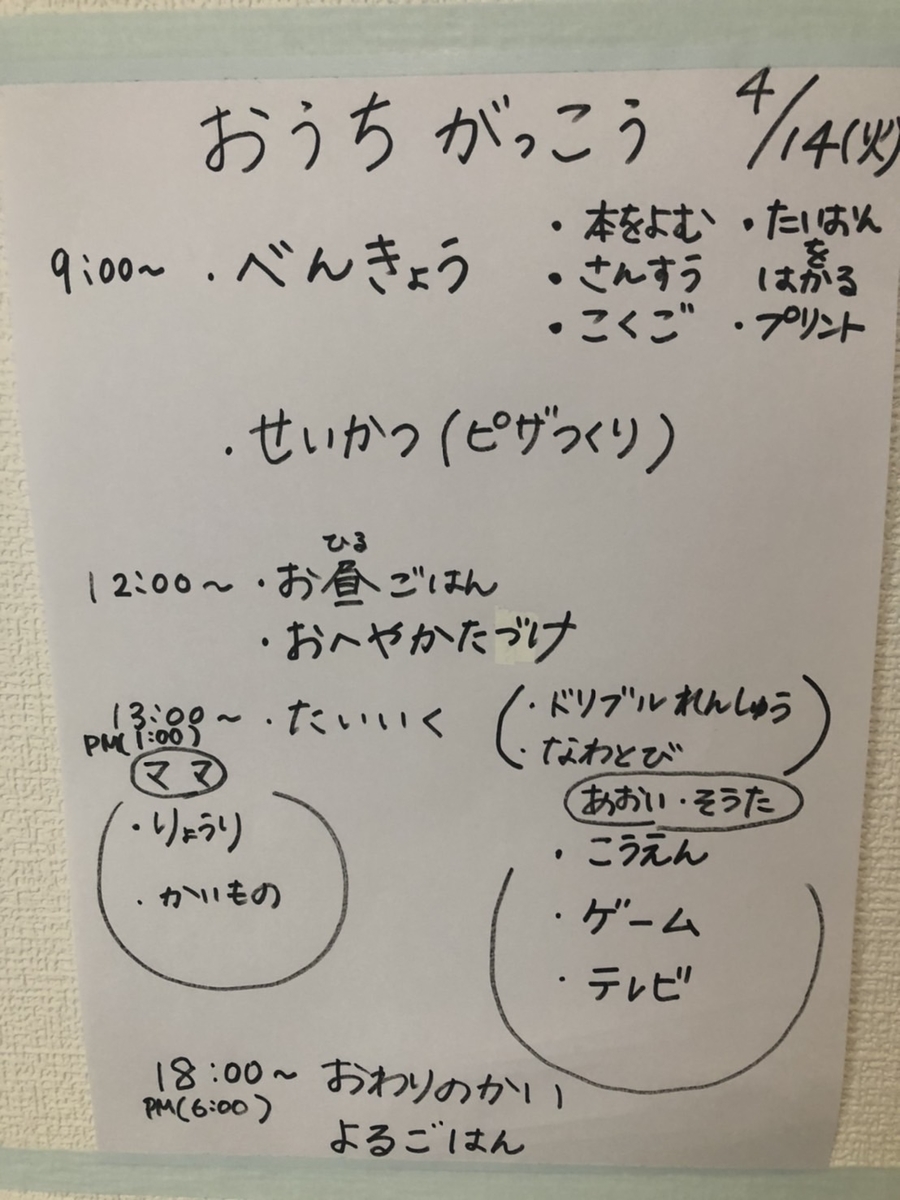 おうちがっこう 4/14(火)
9:00〜 ・べんきょう
・本をよむ ・たいおん
を
・さんすう はかる
・こくご ・プリント
・せいかつ(ピザつくり)
ひる
12:00〜 ・お昼ごはん
・おへやかたづけ
13:00〜 ・たいいく
PM(1:00)
(・ドリブルれんしゅう
・なわとび)
ママ
・りょうり
・かいもの
あおい・そうた
・こうえん
・ゲーム
・テレビ
18:00〜 おわりのかい
PM(6:00)
よるごはん